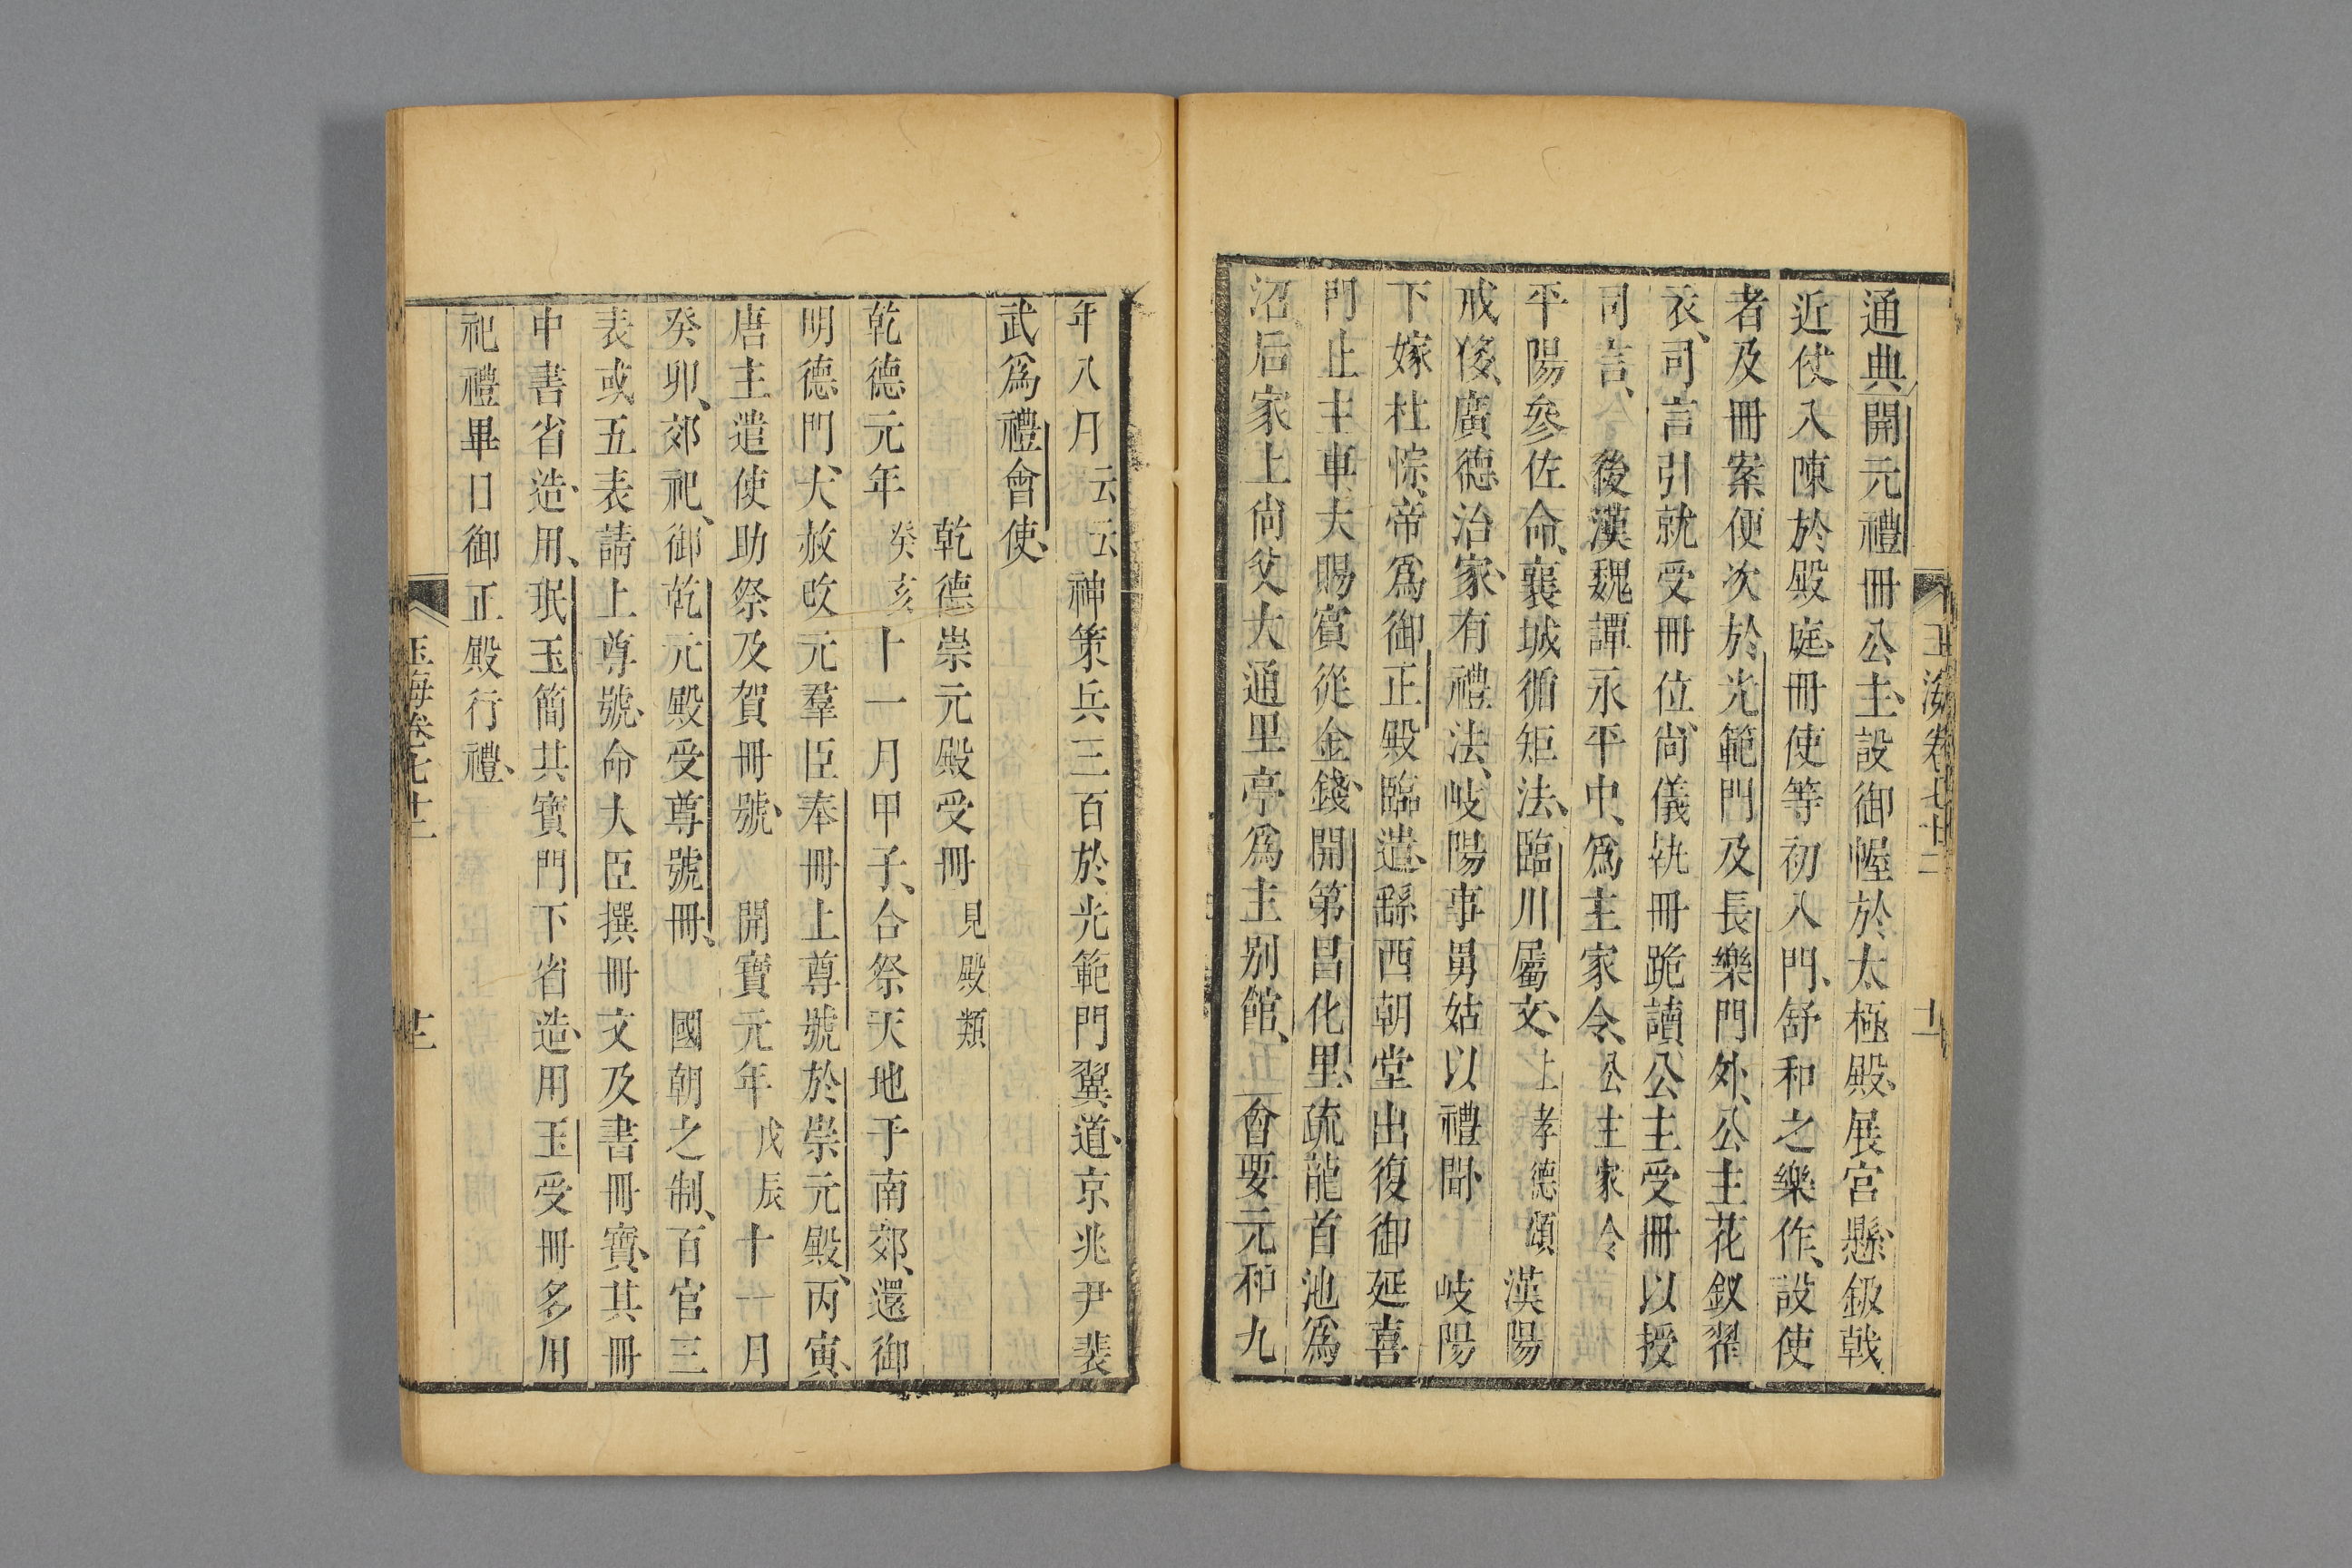 玉海卷七十二
十一
通典開元禮冊公主設御幄於太極殿展宮懸鈒戟
近仗入陳於殿庭冊使等初入門舒和之樂作設使
者及冊案便次於光範門及長樂門外公主花釵翟
衣司言引就受冊位尚儀執冊跪讀公主受冊以授
司言 後漢魏譚永平中為主家令公主家令
平陽參佐命襄城循矩法臨川屬文上孝德頌 漢陽
戒侈廣德治家有禮法岐陽事舅姑以禮聞 岐陽
下嫁杜悰帝為御正殿臨遣繇西朝堂出復御延喜
門止主車大賜賓從金錢開第昌化里疏龍首池為
沼后家上尚父大通里亭為主別館 會要元和九
年八月云云神策兵三百於光範門翼道京兆尹裴
武為禮會使
乾德崇元殿受冊 見殿類
乾德元年癸亥十一月甲子合祭天地于南郊還御
明德門大赦改元羣臣奉冊上尊號於崇元殿丙寅
唐主遣使助祭及賀冊號 開寶元年戊辰十一月
癸卯郊祀御乾元殿受尊號冊 國朝之制百官三
表或五表請上尊號命大臣撰冊文及書冊寶其冊
中書省造用珉玉簡其寶門下省造用玉受冊多用
祀禮畢日御正殿行禮
玉海卷七十二